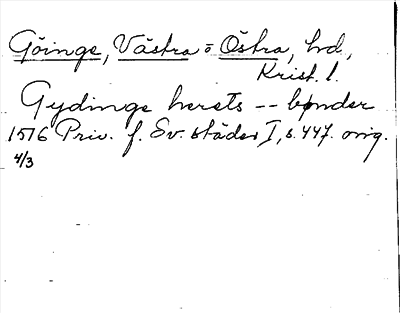 Göinge, Västra o Östra, hd,
Krist. l.
Gydinge herets -- bønder
1516 Priv. f. Sv. städer I, s. 447. orig.
4/3